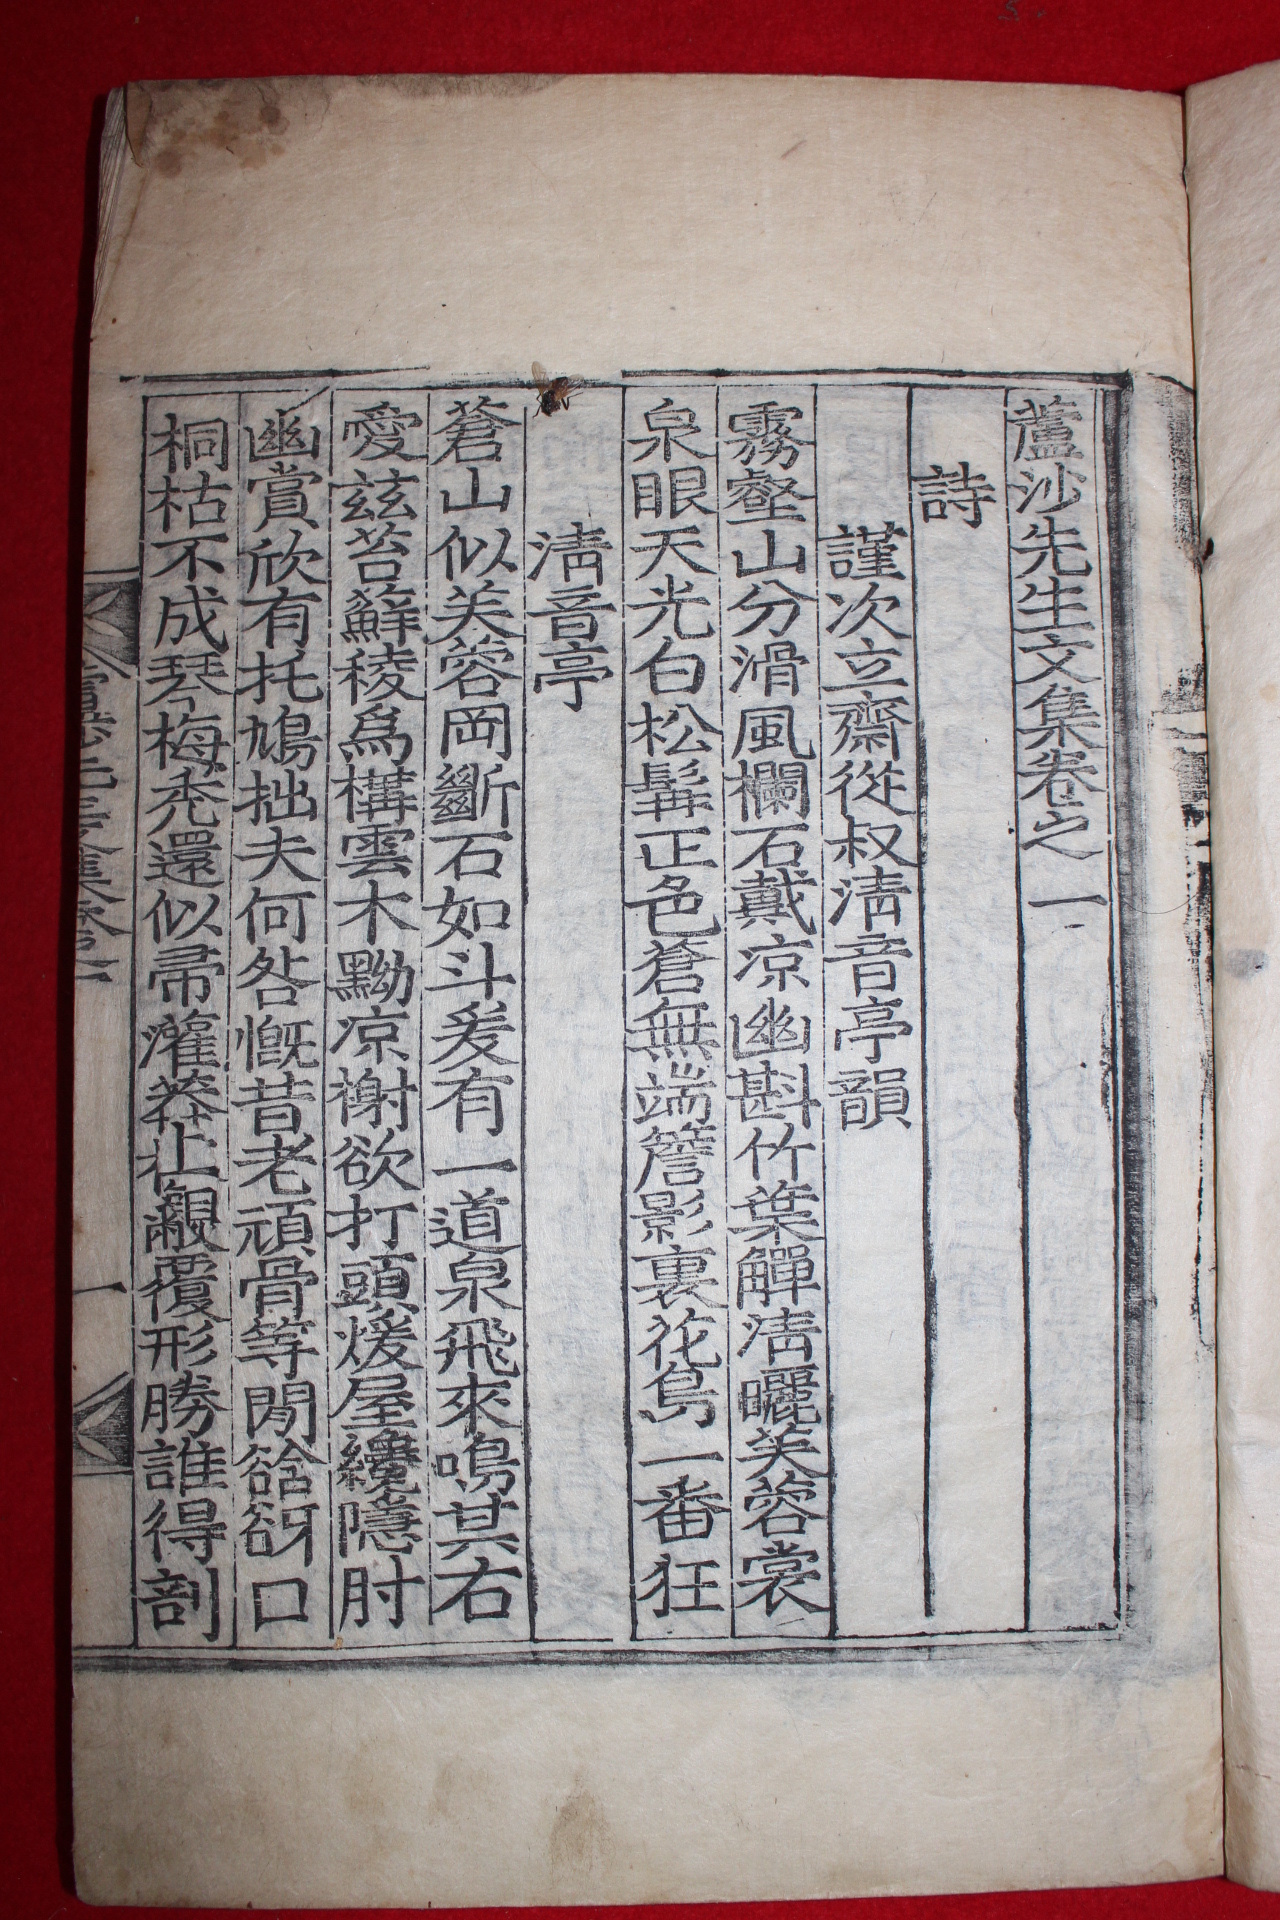 蘆沙先生文集卷之一
詩
謹次立齋從叔淸音亭韻
霧壑山分滑風欄石戴凉幽斟竹葉觶淸曬芙蓉裳
泉眼天光白松髯正色蒼無端簷影裏花鳥一番狂
淸音亭
蒼山似芙蓉岡斷石如斗爰有一道泉飛來鳴其右
愛玆苔蘚稜爲構雲木黝凉榭欲打頭煖屋纔隱肘
幽賞欣有托鳩拙夫何咎慨昔老頑骨等閒谽谺口
桐枯不成琴梅禿還似帚灌莽꞉覰覆形勝誰得剖
蘆沙先生文集卷一
一